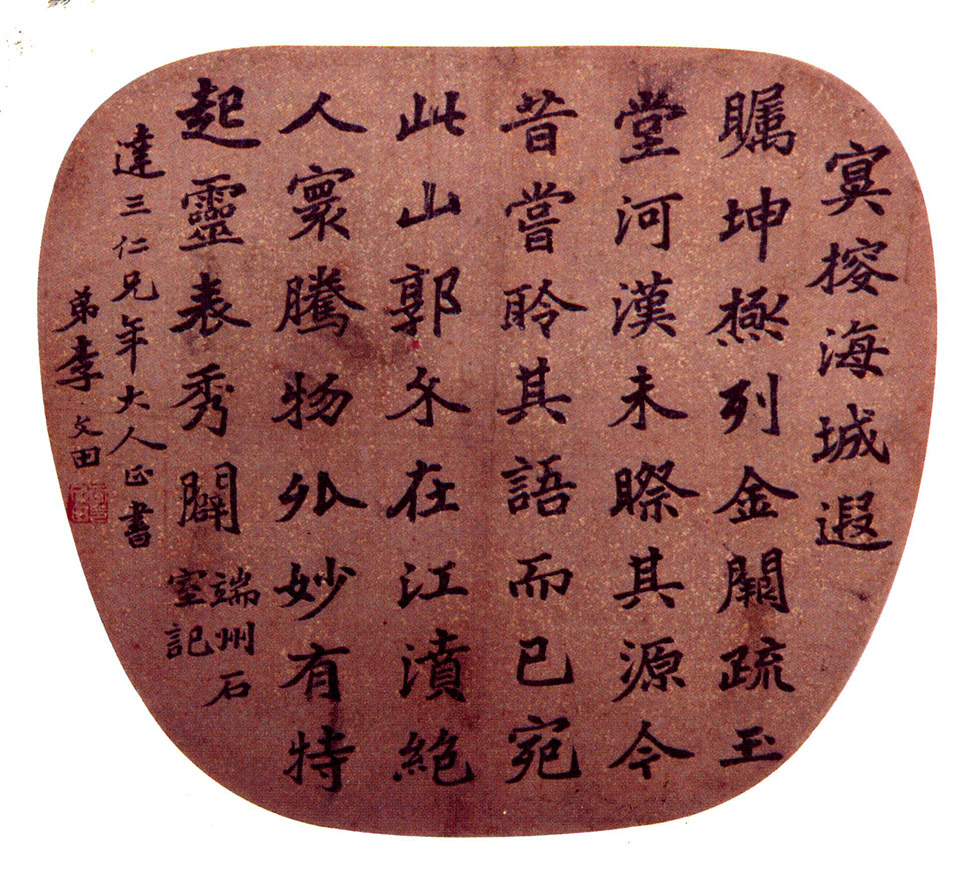 冥搜海城遐
矚坤極列金闕疏玉
堂河漢未際其源今
昔嘗聆其語而已宛
此山郭尒在江濆絕
人寰騰物外妙有特
起靈表秀闢
端州石
室記
達三仁兄年大人正書
弟李文田